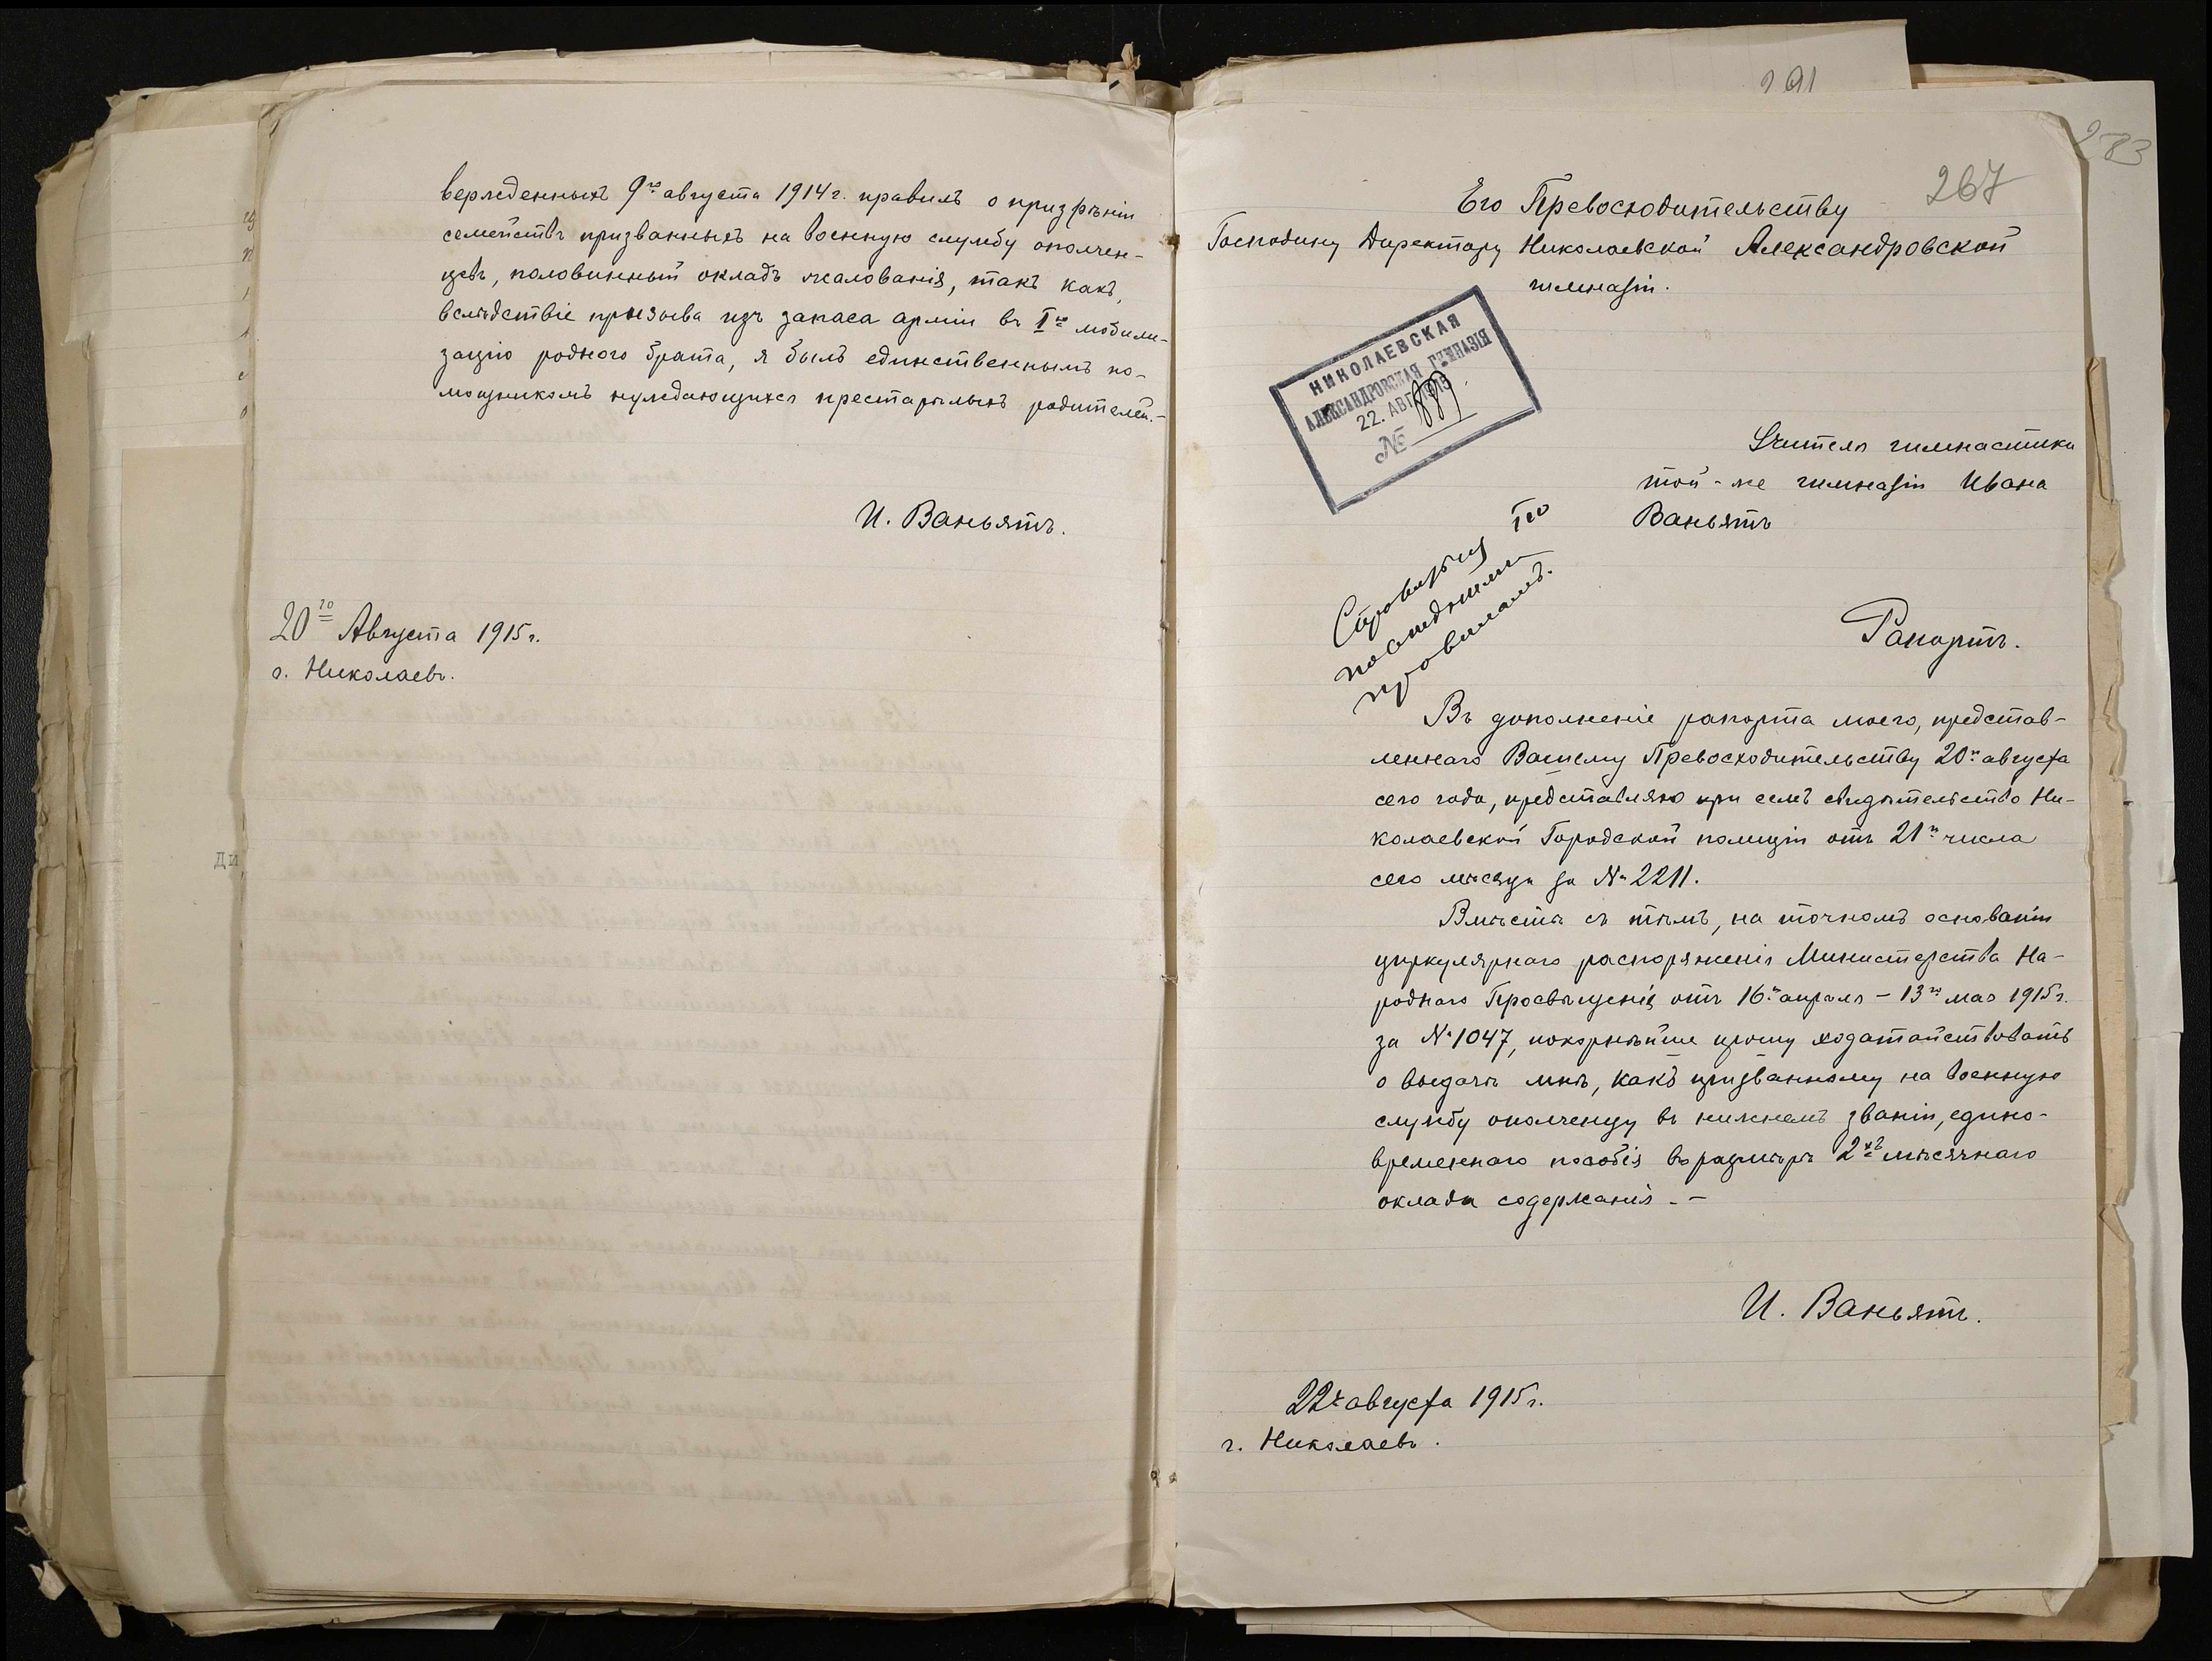 вержденныхъ 9го августа 1914г. правилъ о призрѣніи
семействъ призванныхъ на военную службу ополчен-
цевъ, половинный окладъ жалованія, такъ какъ,
вслѣдствіе призыва изъ запаса арміи въ Iую мобили-
зацію родного брата, я былъ единственнымъ по-
мощникомъ нуждающихся престарѣлыхъ родителей.-
И. Ваньятъ.
20го Августа 1915г.
г. Николаевъ.
ди
291
283
267
Его Превосходительству
Господину Директору Николаевской Александровской
гимназіи.
НИКОЛАЕВСКАЯ
АЛЕКСАНДРОВСКАЯ ГИМНАЗІЯ
22. АВГ 1915
№ 889
Учителя гимнастики
той-же гимназіи Ивана
Ваньятъ
по
правиламъ.
Рапортъ.
Въ дополненіе рапорта моего, представ-
леннаго Вашему Превосходительству 20го августа
сего года, представляю при семъ свидѣтельство Ни-
колаевской Городской полиціи отъ 21го числа
сего мѣсяца за № 2211.
Вмѣстѣ съ тѣмъ, на точномъ основаніи
циркулярнаго распоряженія Министерства На-
роднаго Просвѣщенія отъ 16го апрѣля - 13го мая 1915г.
за № 1047, покорнѣйше прошу ходатайствовать
о выдачѣ мнѣ, какъ призванному на военную
службу ополченцу въ нижнемъ званіи, едино-
временнаго пособія въ размѣрѣ 2хъ мѣсячнаго
оклада содержанія. -
И. Ваньятъ.
22го августа 1915г.
г. Николаевъ.